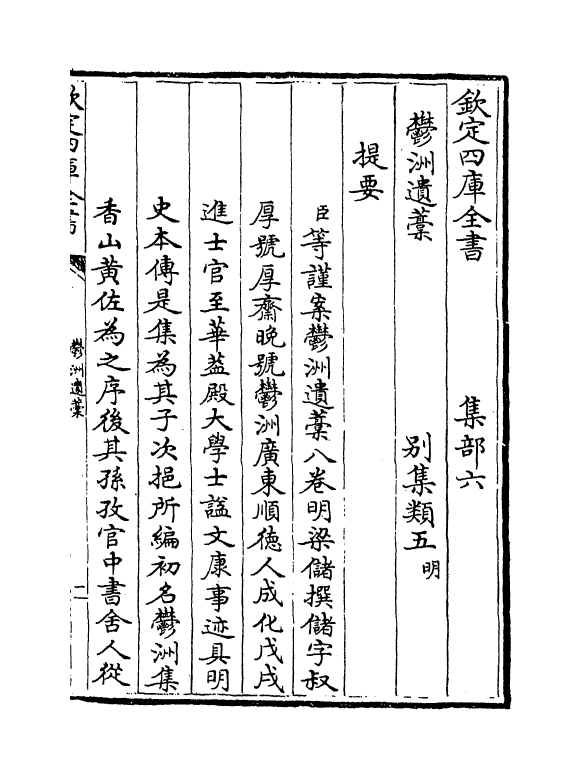 欽定四庫全書　集部六
鬱洲遺藁　别集類五明
提要
臣等謹案鬱洲遺藁八卷明梁儲撰儲字叔
厚號厚齋晚號鬱洲廣東順徳人成化戊戌
進士官至華葢殿大學士諡文康事迹具明
史本傳是集為其子次挹所編初名鬱洲集
香山黄佐為之序後其孫孜官中書舍人從
欽定四庫全書
鬱洲遺藁
一